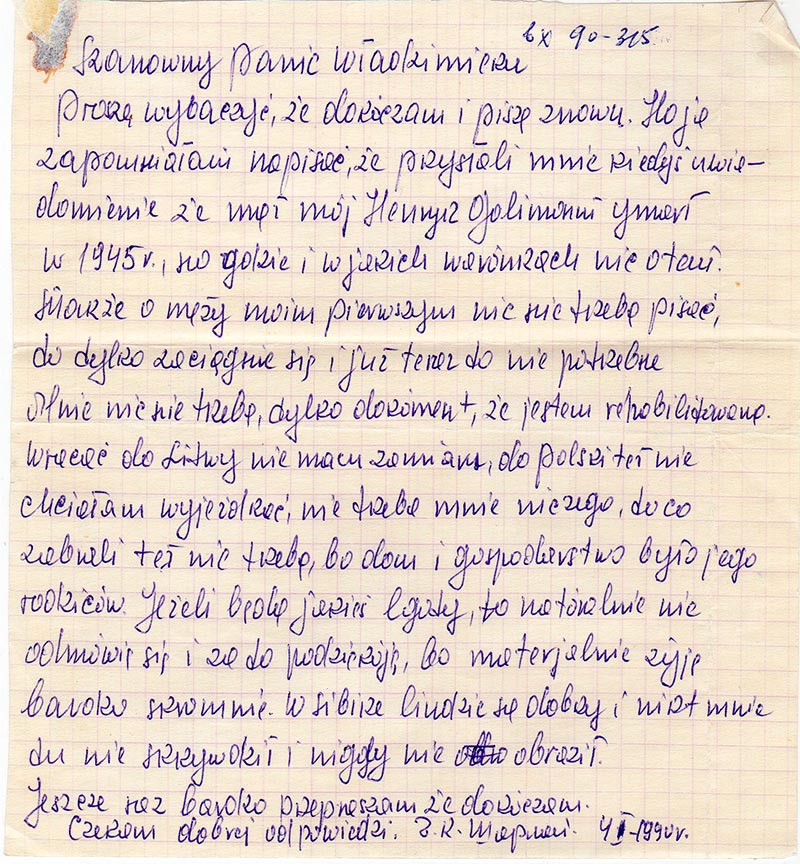 вх 90-315
Szanowny Panie Władzimierzu
Proszą wybaczyć, że dokóczam i piszę znowu. Może
zapomniałam napisać, że przysłali mnie kiedyś uwia-
domienie że męż mój Henryk umarł
w 1945 r., no gdzie i w jakich warónkach nic o tem.
Także o mężu moim pierwszym nic nie trzeba pisać,
to dylko zaciągnie się i już teraz to nie potrzebne
Mnie nic nie trzeba, dylko dokoment, że jestem rehabilitowana.
Wracać do Litwy nie mam zamiaru, do Polski też nie
chciałam wyjeżdżać, nie trzeba mnie niczego, to co
zabrali też nie trzeba, bo dom i gospodarstwo było jego
rodziców. Jeżeli będą jakieś lgoty, to natóralnie nie
odmówię się i za to podziękóję, bo materjalnie żyję
bardzo skromnie. W Sibirze ludzie są dobrzy i nikt mnie
tu nie skrzywdził i nigdy nie obraził.
Jeszcze raz bardzo przepraszam że dokóczam.
Czekam dobrej odpowiedzi. З. К. 4 I-1990 r.